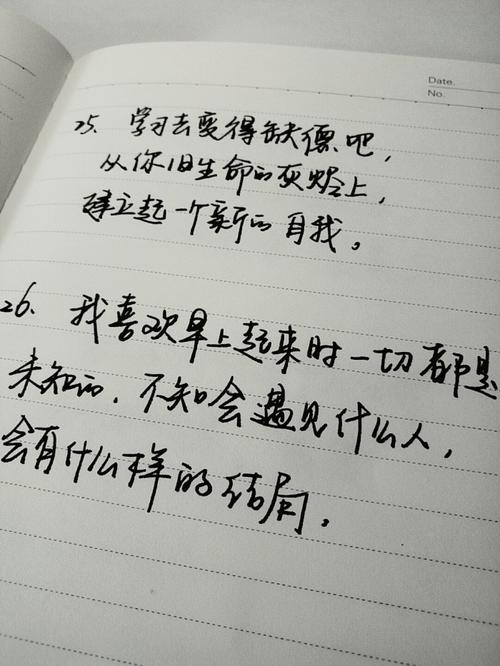 Date.
No.
25. 学习去变得缺德吧,
从你旧生命的灰烬上,
建立起一个新的自我。
26. 我喜欢早上起来时一切都是
未知的, 不知会遇见什么人,
会有什么样的结局。